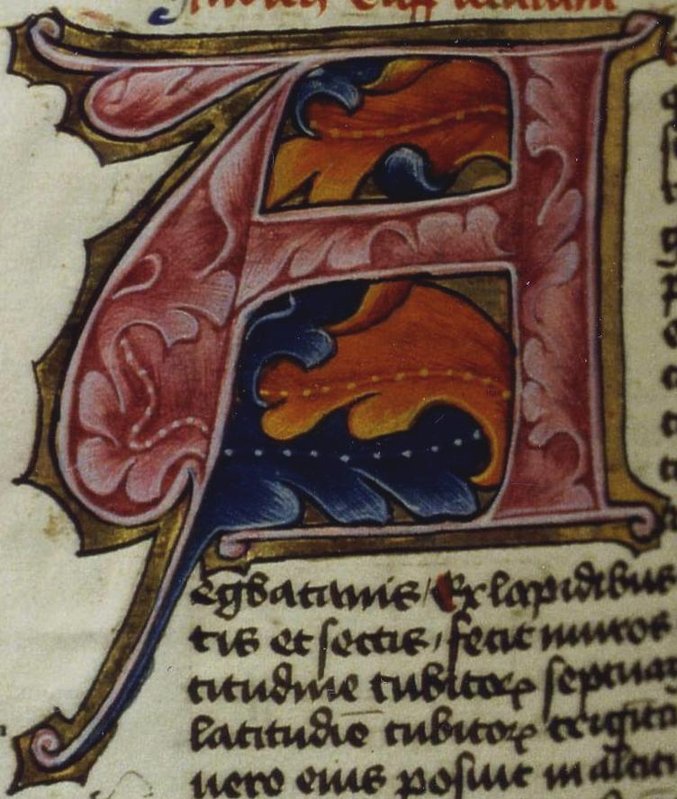 A
egbatanis / Ex lapidibus
tis et sectis, fecit muros
titudine cubitoꝝ septuag
latitudiē cubitoꝝ triginta
vero eius posuit in altitu